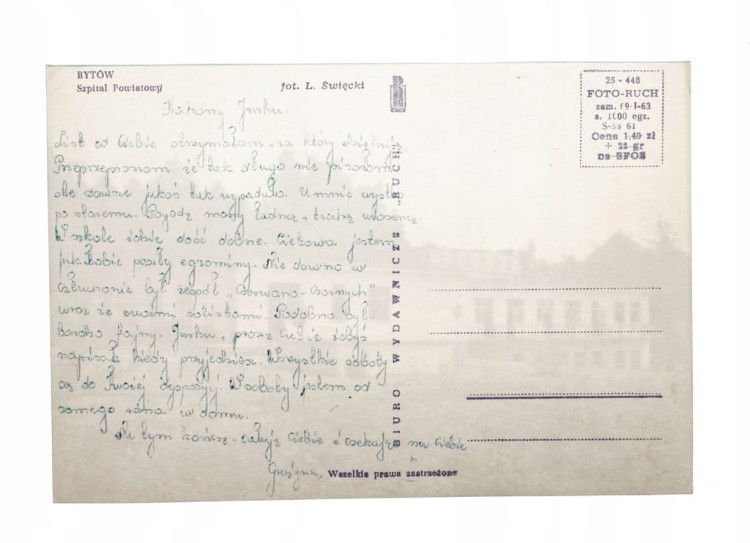 BYTÓW
Szpital Powiatowy
fot. L. Święcki
25 - 448
FOTO-RUCH
zam. 69-I-63
n. 1000 egz.
S-55 61
Cena 1,40 zł
+ 22 gr
na SFOS
BIURO WYDAWNICZE „RUCH"
Kochany Jurku.
List od Ciebie otrzymałam, za który dziękuję.
Przepraszam że tak długo nie pisałam
ale zawsze jakoś tak wypadało. U mnie wszystko
po staremu. Pogodę mamy ładną, trochę
W szkole idzie dość dobrze. Ciekawa jestem
jak Tobie poszły egzaminy. Nie dawno w
był zespół „Czerwono-Czarnych"
wraz ze swoimi solistami. Podobno był
bardzo fajny. Jurku, proszę Ciebie żebyś
napisał kiedy przyjedziesz. Wszystkie soboty
są do Twojej dyspozycji. W soboty jestem od
samego rana w domu.
Na tym kończę. całuję Ciebie i czekam na Ciebie
Grażyna.
Wszelkie prawa zastrzeżone